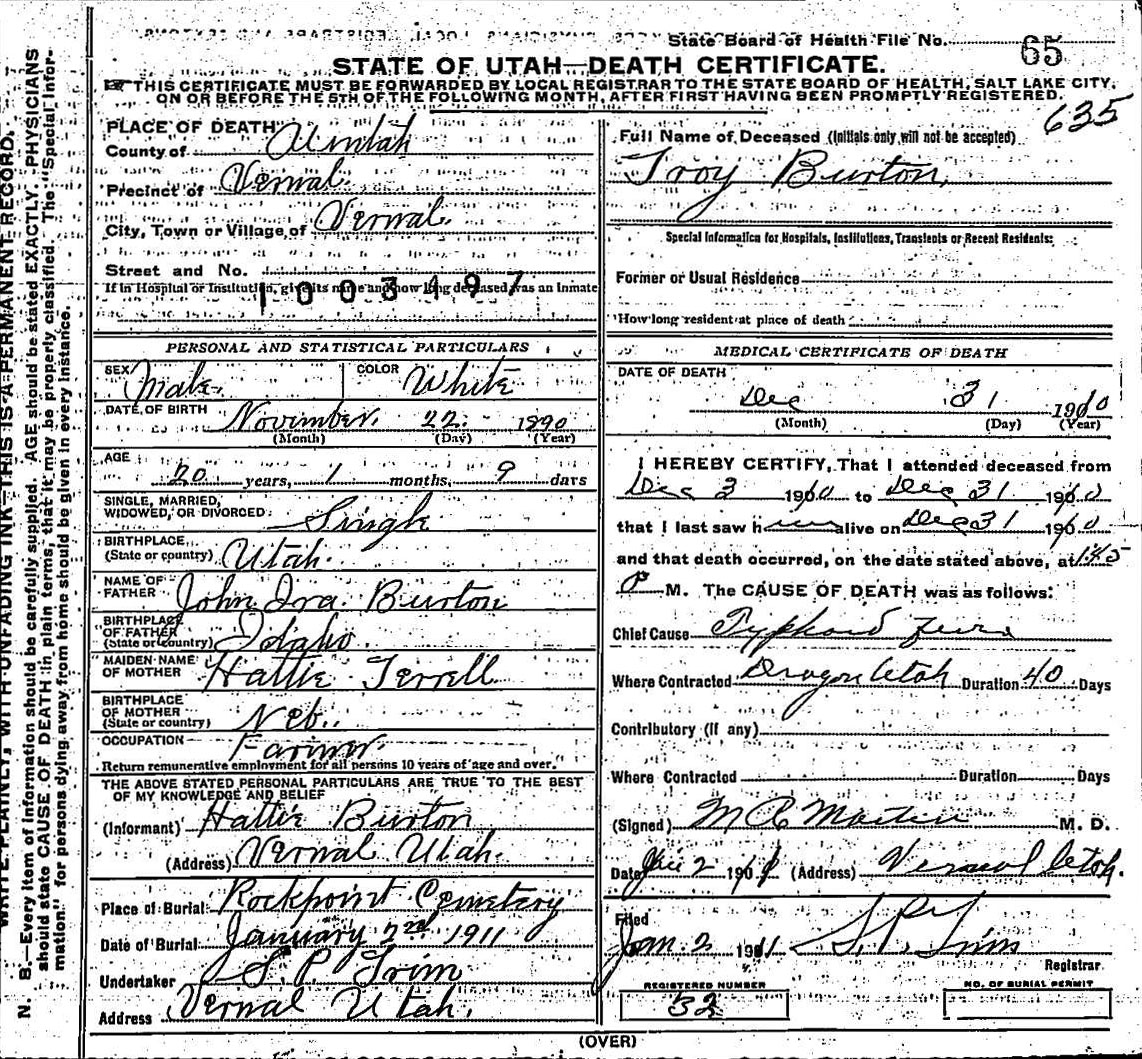 State Board of Health File No. 65
STATE OF UTAH—DEATH CERTIFICATE.
THIS CERTIFICATE MUST BE FORWARDED BY LOCAL REGISTRAR TO THE STATE BOARD OF HEALTH, SALT LAKE CITY,
ON OR BEFORE THE 5TH OF THE FOLLOWING MONTH, AFTER FIRST HAVING BEEN PROMPTLY REGISTERED.
635
PLACE OF DEATH
County of Uintah
Precinct of Vernal
City, Town or Village of Vernal
Street and No.
If in Hospital or Institution, give its name and how long deceased was an Inmate
1003197
PERSONAL AND STATISTICAL PARTICULARS
SEX Male
COLOR White
DATE OF BIRTH November 22 1890
(Month) (Day) (Year)
AGE
20 years, 1 months, 9 days
SINGLE, MARRIED,
WIDOWED, OR DIVORCED Single
BIRTHPLACE
(State or country) Utah
NAME OF
FATHER John Ira Burton
BIRTHPLACE
OF FATHER
(State or country) Idaho
MAIDEN NAME
OF MOTHER Hattie Terrell
BIRTHPLACE
OF MOTHER
(State or country) Neb.
OCCUPATION Farmer
Return remunerative employment for all persons 10 years of age and over.
THE ABOVE STATED PERSONAL PARTICULARS ARE TRUE TO THE BEST
OF MY KNOWLEDGE AND BELIEF
(Informant) Hattie Burton
(Address) Vernal Utah.
Place of Burial Rockpoint Cemetery
Date of Burial January 2nd 1911
Undertaker S. P. Trim
Address Vernal Utah.
Full Name of Deceased (Initials only will not be accepted)
Troy Burton,
Special Information for Hospitals, Institutions, Transients or Recent Residents:
Former or Usual Residence
How long resident at place of death
MEDICAL CERTIFICATE OF DEATH
DATE OF DEATH
Dec 31 1910
(Month) (Day) (Year)
I HEREBY CERTIFY, That I attended deceased from
Dec 3 1910 to Dec 31 1910
that I last saw him alive on Dec 31 1910
and that death occurred, on the date stated above, at
P M. The CAUSE OF DEATH was as follows:
Chief Cause Typhoid fever
Where Contracted Dragon Utah Duration 40 Days
Contributory (if any)
Where Contracted Duration Days
(Signed) M. D.
Date Jan 2 1911 (Address) Vernal Utah.
Filed
Jan. 2 1911 S. P. Trim
Registrar
REGISTERED NUMBER
52
NO. OF BURIAL PERMIT
(OVER)
WRITE PLAINLY, WITH UNFADING INK—THIS IS A PERMANENT RECORD.
N. B.—Every item of information should be carefully supplied. AGE should be stated EXACTLY. PHYSICIANS
should state CAUSE OF DEATH in plain terms, that it may be properly classified. The "Special Infor-
mation" for persons dying away from home should be given in every instance.